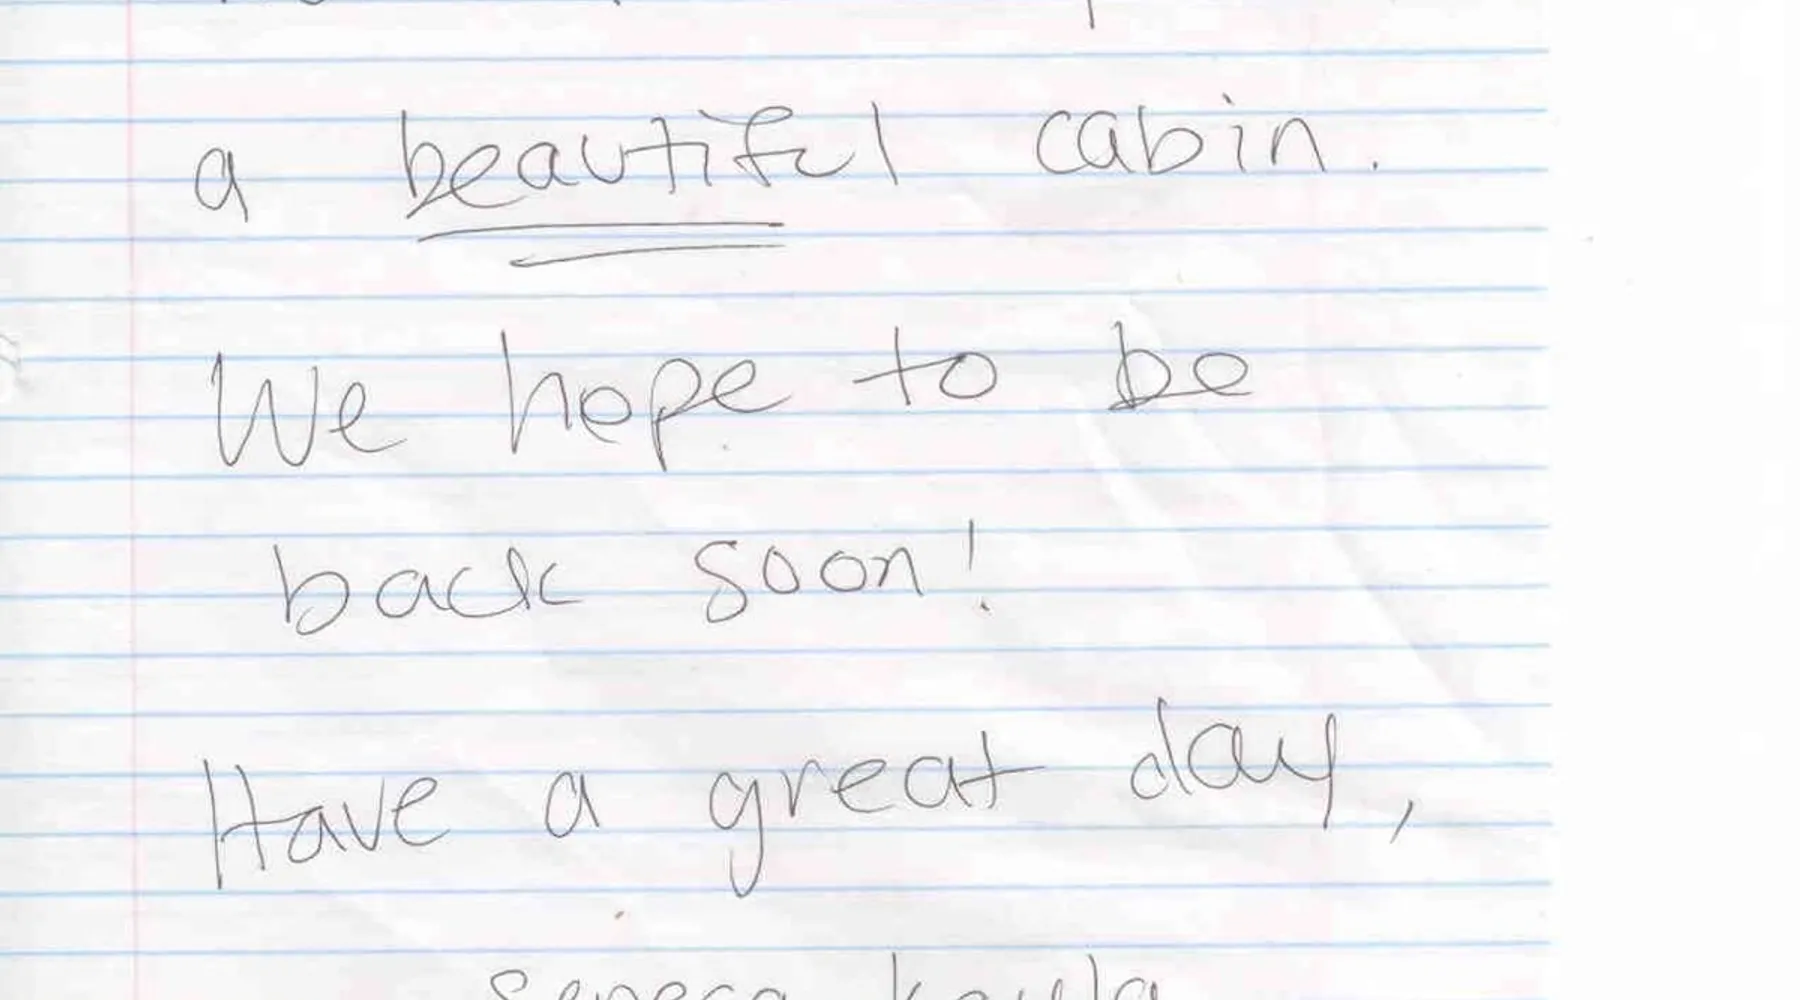 a beautiful cabin.
We hope to be
back soon!
Have a great day,